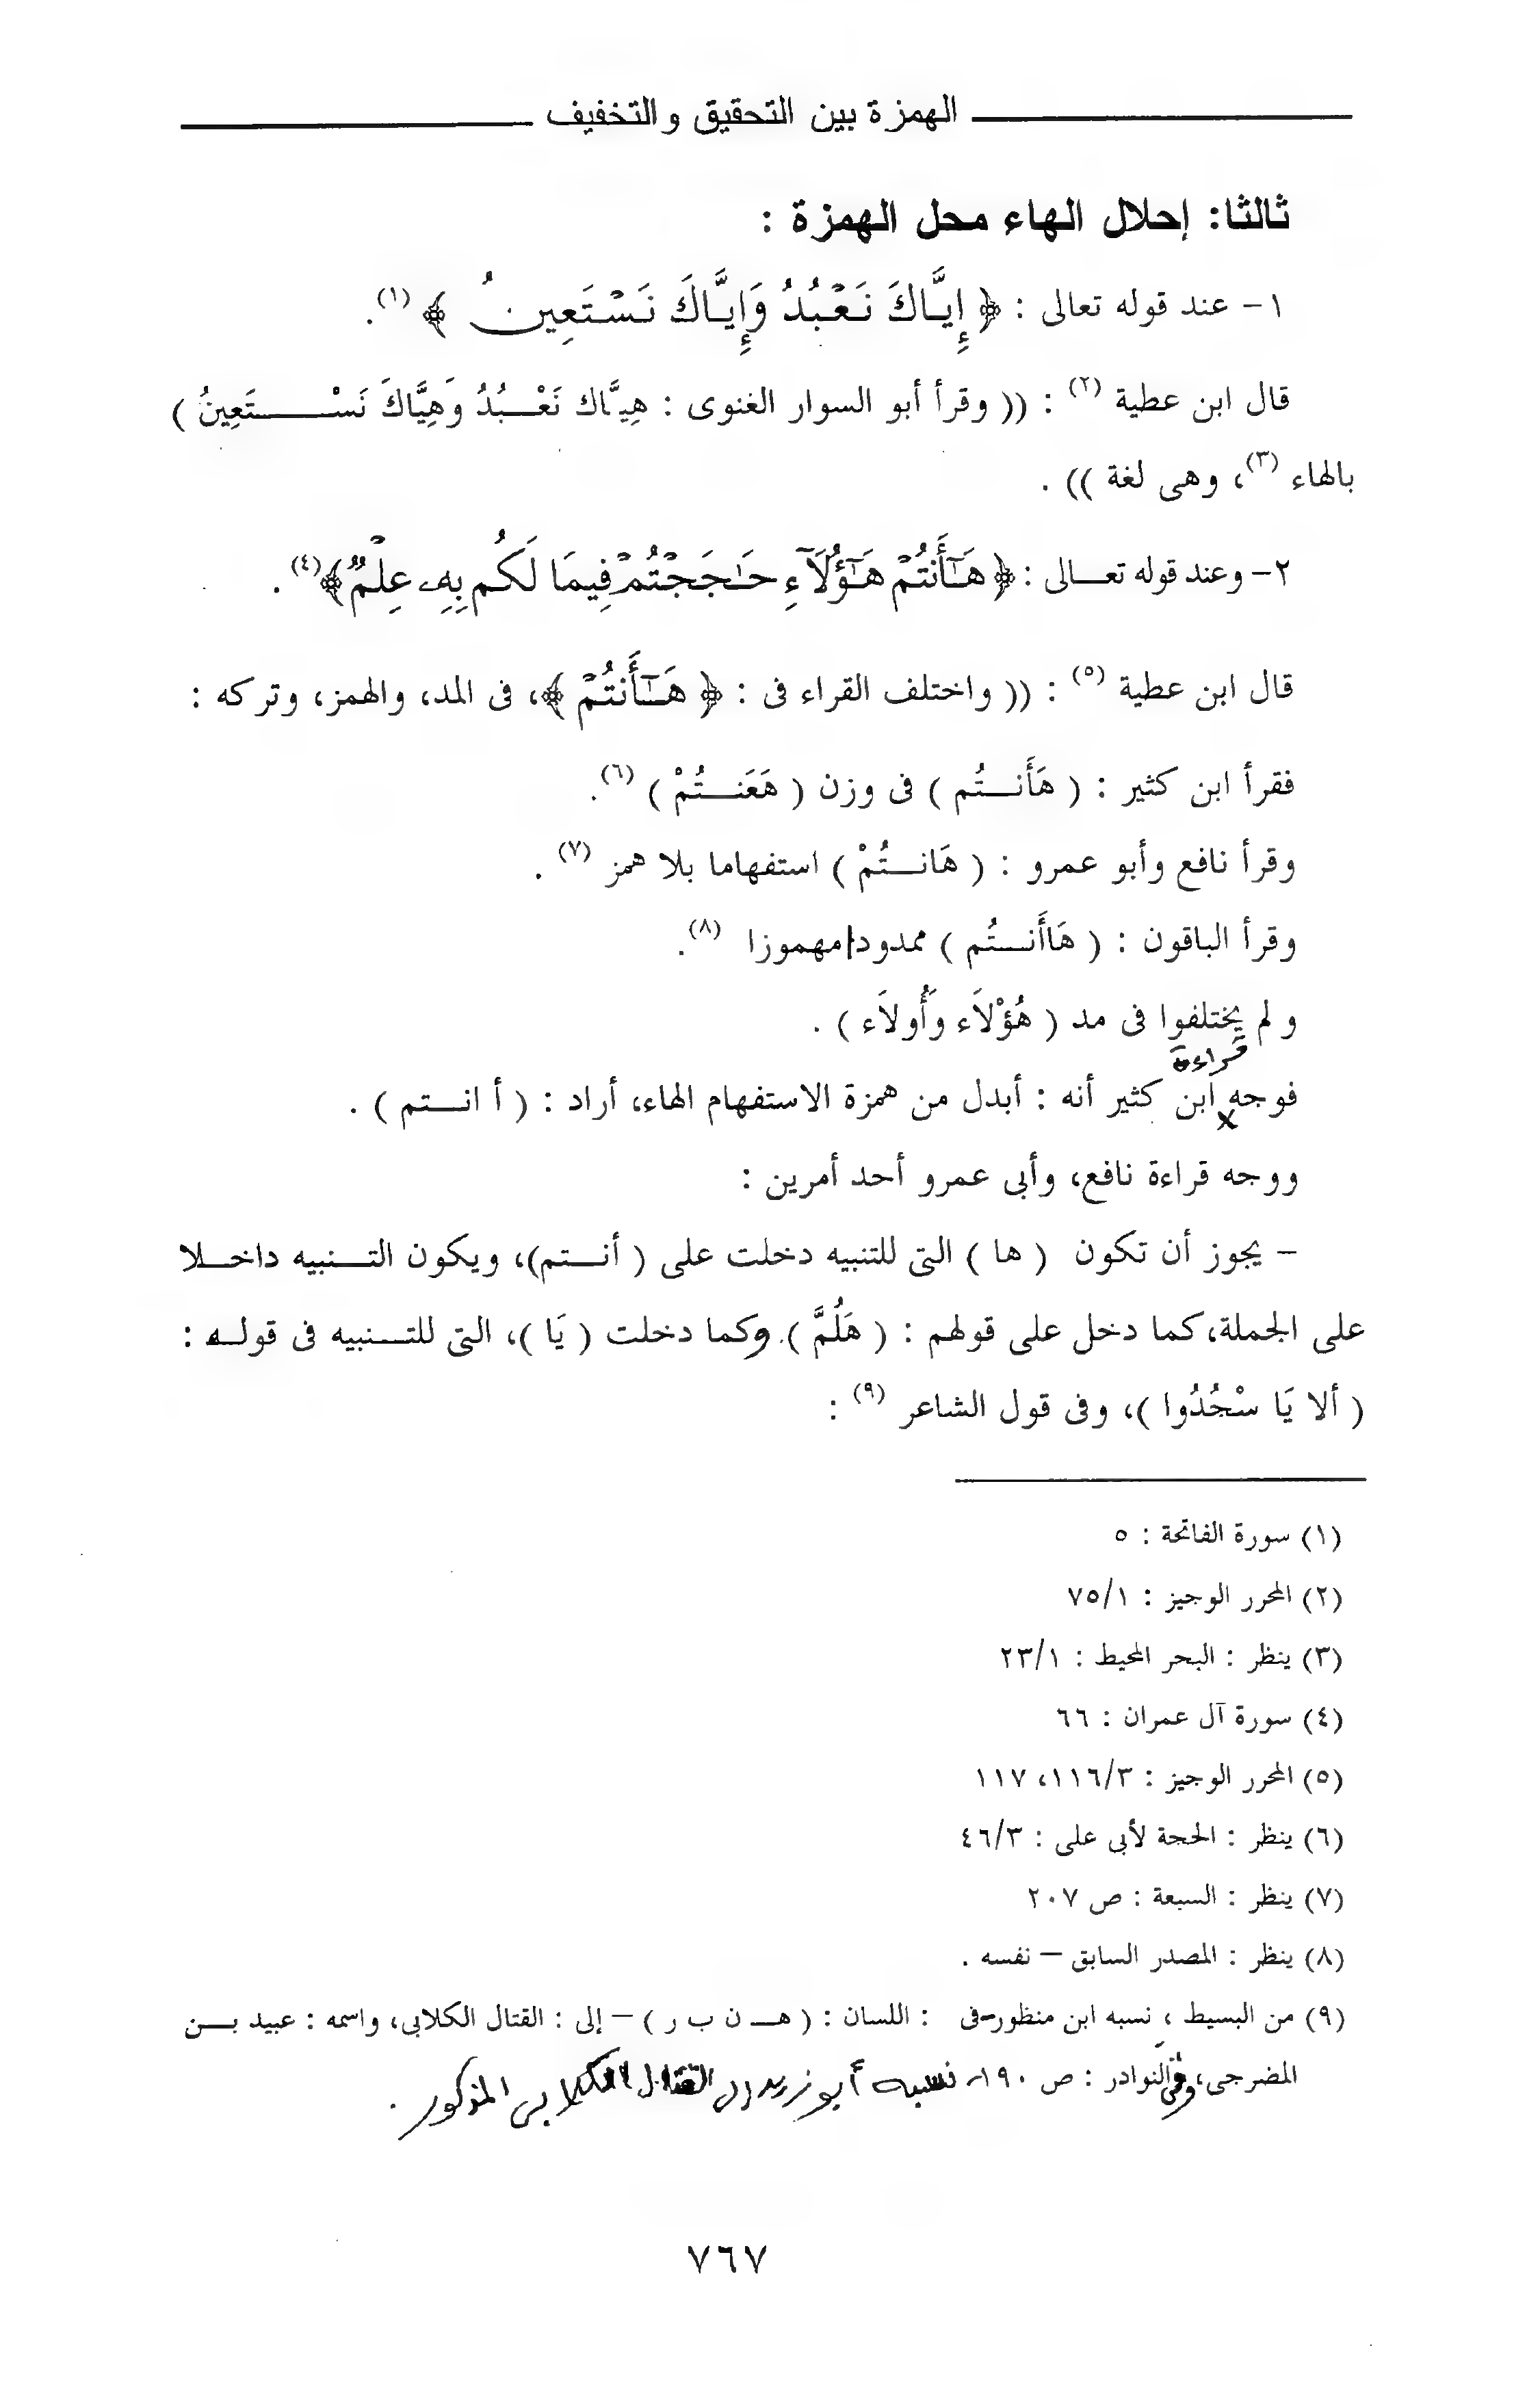 الهمزة بين التحقيق والتخفيف
ثالثا: إحلال الهاء محل الهمزة :
١- عند قوله تعالى : ﴿ إِيَّاكَ نَعْبُدُ وَإِيَّاكَ نَسْتَعِينُ ﴾ (١).
قال ابن عطية (٢) : (( وقرأ أبو السوار الغنوى : هِيَّاك نَعْبُدُ وَهِيَّاكَ نَسْتَعِينُ )
بالهاء (٣)، وهى لغة )) .
٢- وعند قوله تعالى : ﴿ هَٰٓأَنتُمْ هَٰٓؤُلَآءِ حَٰجَجْتُمْ فِيمَا لَكُم بِهِۦ عِلْمٌ﴾(٤) .
قال ابن عطية (٥) : (( واختلف القراء فى : ﴿ هَٰٓأَنتُمْ ﴾، فى المد، والهمز، وتركه :
فقرأ ابن كثير : ( هَأَنتُم ) فى وزن ( هَعَنتُمْ ) (٦).
وقرأ نافع وأبو عمرو : ( هَانتُمْ ) استفهاما بلا همز (٧) .
وقرأ الباقون : ( هَاأَنتُم ) ممدودا مهموزا (٨).
و لم يختلفوا فى مد ( هُؤْلاَء وَأُولاَء ) .
قراءة
فوجه ابن كثير أنه : أبدل من همزة الاستفهام الهاء، أراد : ( أ انتم ) .
ووجه قراءة نافع، وأبى عمرو أحد أمرين :
– يجوز أن تكون ( ها ) التى للتنبيه دخلت على ( أنتم)، ويكون التنبيه داخلا
على الجملة، كما دخل على قولهم : ( هَلُمَّ ). وكما دخلت ( يَا )، التى للتنبيه فى قوله :
( ألا يَا سْجُدُوا )، وفى قول الشاعر (٩) :
(١) سورة الفاتحة : ٥
(٢) المحرر الوجيز : ٧٥/١
(٣) ينظر : البحر المحيط : ٢٣/١
(٤) سورة آل عمران : ٦٦
(٥) المحرر الوجيز : ١١٦/٣، ١١٧
(٦) ينظر : الحجة لأبى على : ٤٦/٣
(٧) ينظر : السبعة : ص ٢٠٧
(٨) ينظر : المصدر السابق – نفسه .
(٩) من البسيط ، نسبه ابن منظور-فى : اللسان : ( هـ ن ب ر ) – إلى : القتال الكلابى، واسمه : عبيد بن
المضرجى، وفى النوادر : ص ١٩٠ نسبه أبو زيد إلى القتال الكلابى المذكور .
٧٦٧